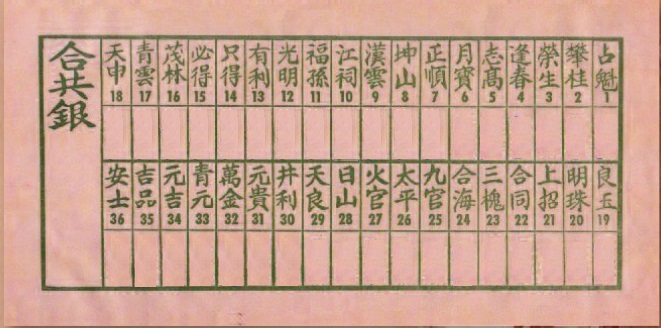 占魁 1
攀桂 2
榮生 3
逢春 4
志高 5
月寶 6
正順 7
坤山 8
漢雲 9
江祠 10
福孫 11
光明 12
有利 13
只得 14
必得 15
茂林 16
青雲 17
天申 18
良玉 19
明珠 20
上招 21
合同 22
三槐 23
合海 24
九官 25
太平 26
火官 27
日山 28
天良 29
井利 30
元貴 31
萬金 32
青元 33
元吉 34
吉品 35
安士 36
合共銀